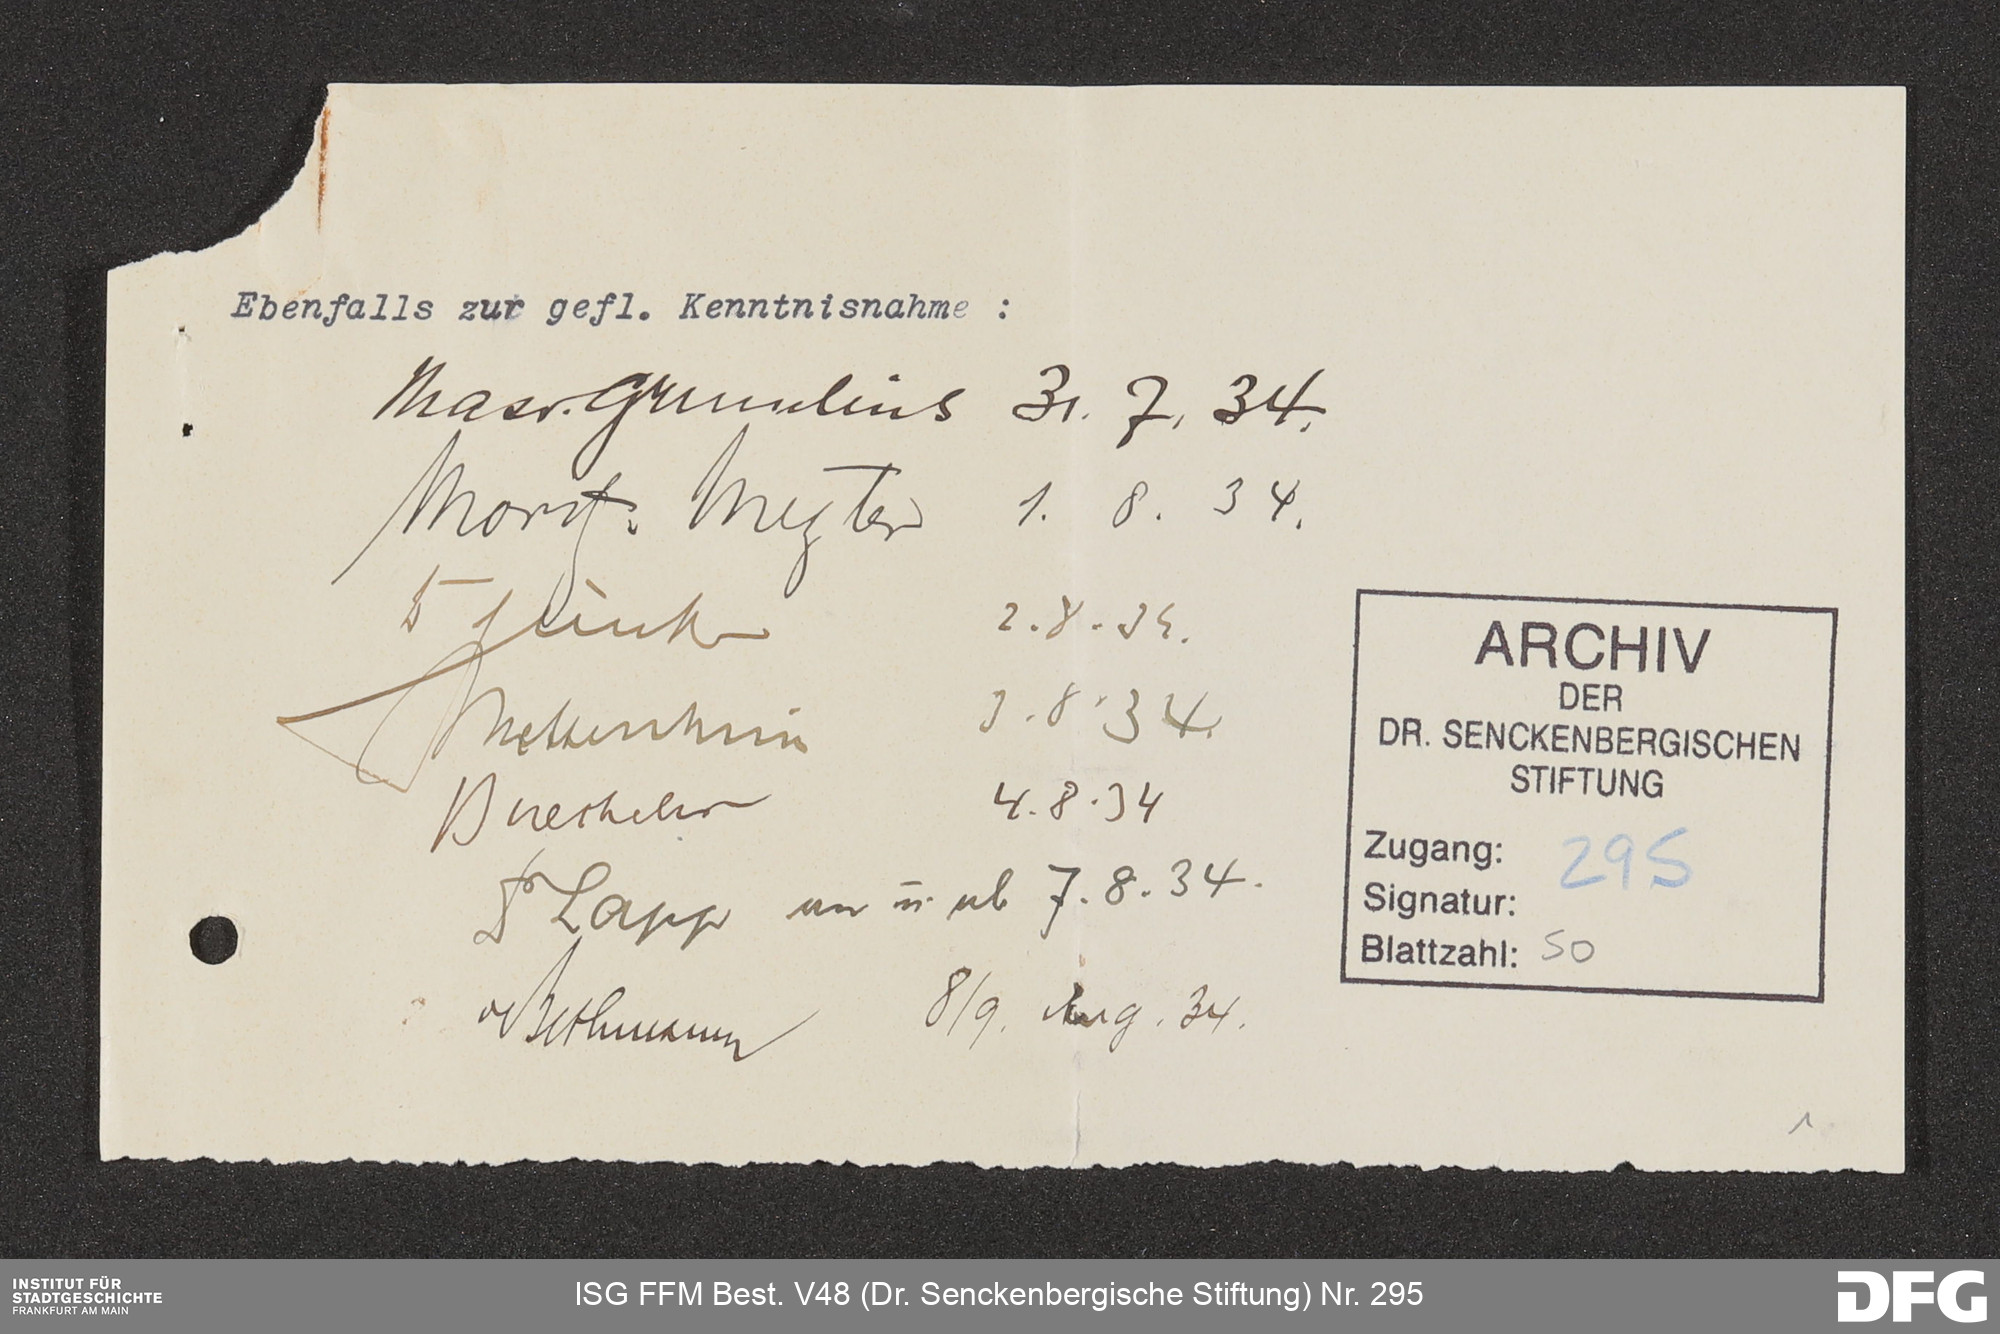 Ebenfalls zur gefl. Kenntnisnahme :
Grumelius 31. 7. 34.
1. 8. 34.
2. 8. 34.
Mettenheim 3. 8. 34.
4. 8. 34
Dr Lapp an u. ab 7. 8. 34.
v Bethmann 8/9. Aug. 34.
ARCHIV
DER
DR. SENCKENBERGISCHEN
STIFTUNG
Zugang: 295
Signatur:
Blattzahl: 50
1
INSTITUT FÜR
STADTGESCHICHTE
FRANKFURT AM MAIN
ISG FFM Best. V48 (Dr. Senckenbergische Stiftung) Nr. 295
DFG